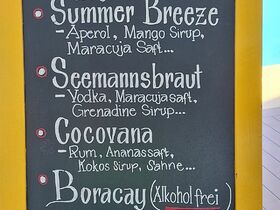 Summer Breeze
- Aperol, Mango Sirup,
Maracuja Saft...
Seemannsbraut
- Vodka, Maracujasaft,
Grenadine Sirup...
Cocovana
- Rum, Ananassaft,
Kokos Sirup, Sahne...
Boracay (Alkohol frei)